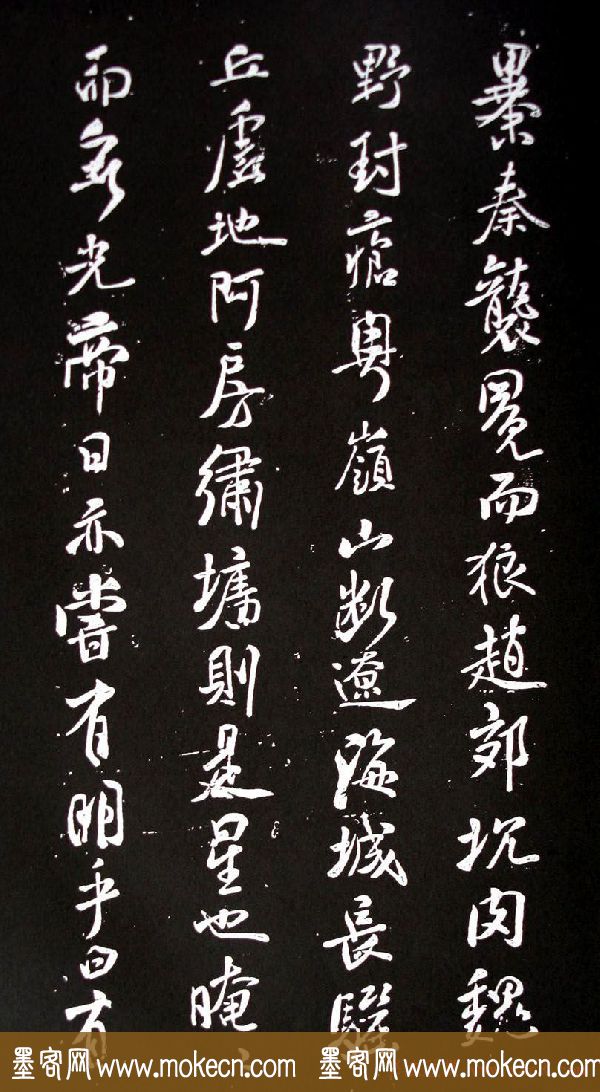 暴秦襲冕而狼趙郊坑肉魏
野封瘡粤嶺山斷遼海城長驪
丘虛地阿房繡墉則是星也晻
而無光帝曰亦嘗有明乎曰有
墨客网 www.mokecn.com 墨客网 www.mokecn.com